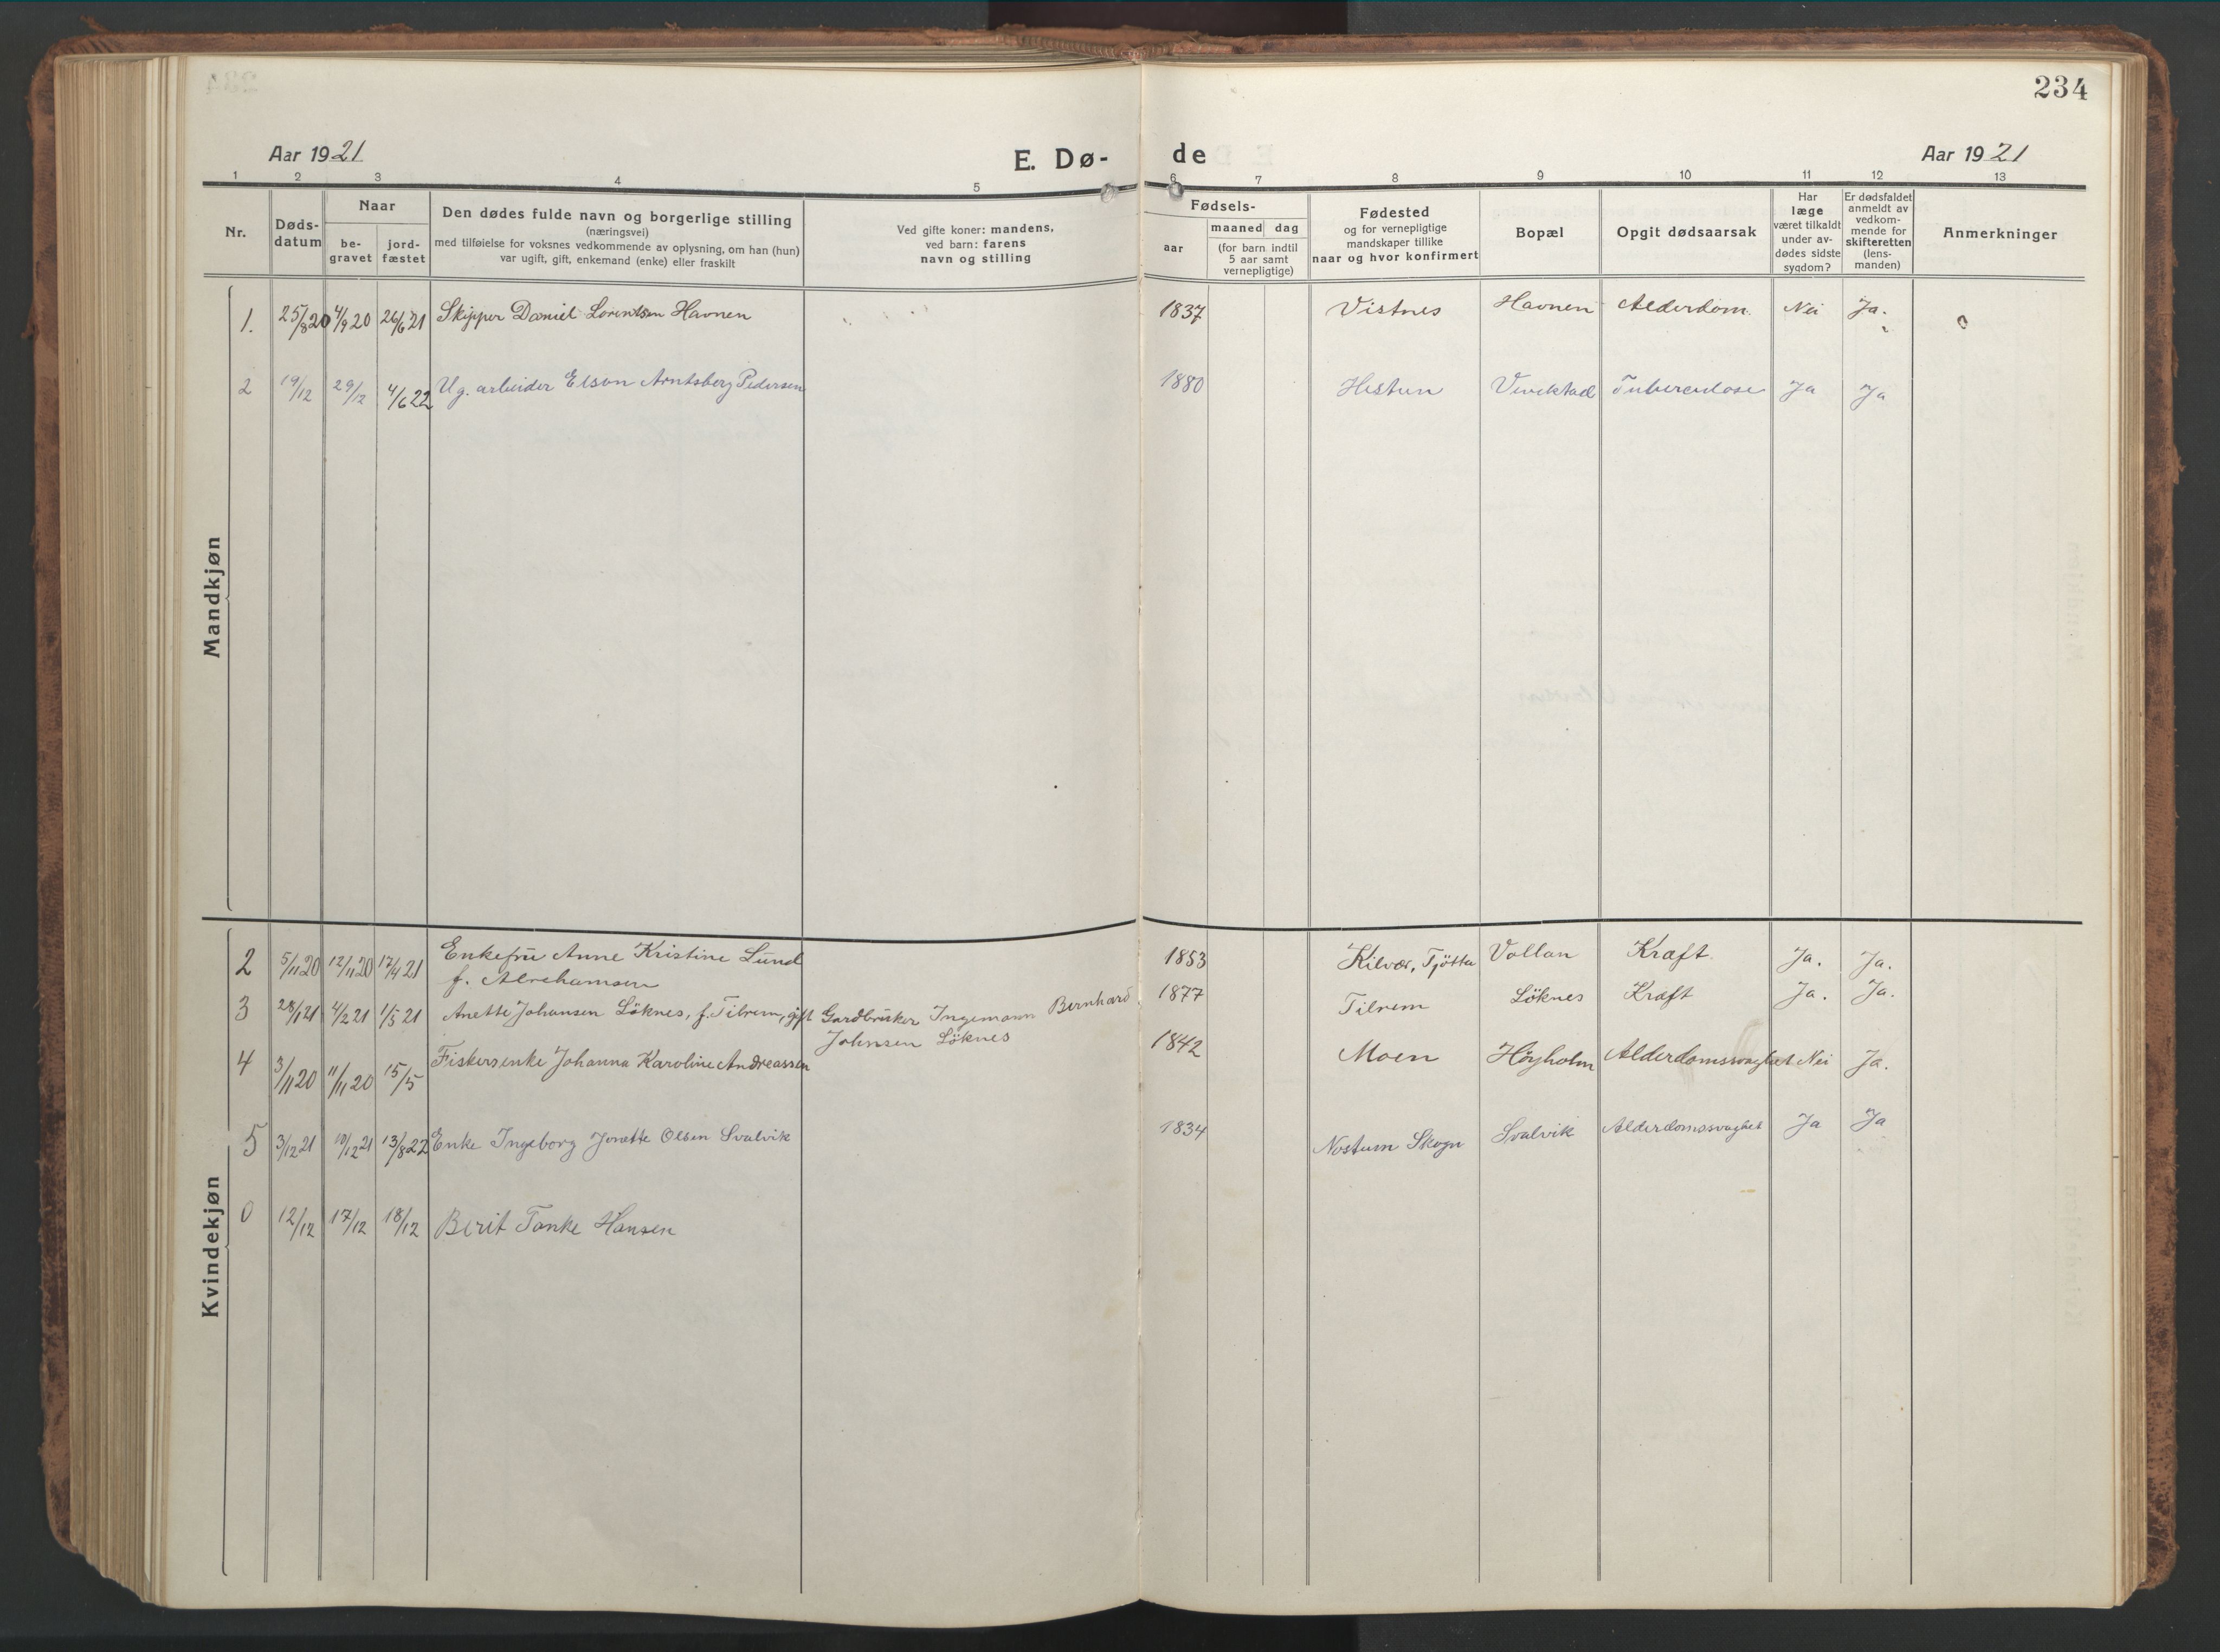 234
Aar 1921
E. Dø-
de
Aar 1921
1 2 3 4 5 6 7 8 9 10 11 12 13
Nr.
Døds-
datum
Naar
be-
gravet
jord-
fæstet
Den dødes fulde navn og borgerlige stilling
(næringsvei)
med tilføielse for voksnes vedkommende av oplysning, om han (hun)
var ugift, gift, enkemand (enke) eller fraskilt
Ved gifte koner: mandens,
ved barn: farens
navn og stilling
Fødsels-
aar
maaned dag
(for barn indtil
5 aar samt
vernepligtige)
Fødested
og for vernepligtige
mandskaper tillike
naar og hvor konfirmert
Bopæl
Opgit dødsaarsak
Har
læge
været tilkaldt
under av-
dødes sidste
sygdom?
Er dødsfaldet
anmeldt av
vedkom-
mende for
skifteretten
(lens-
manden)
Anmerkninger
Mandkjøn
1. 25/8 20 4/9 20 26/6 21 Skipper Daniel Lorentsen Havnen 1837 Vistnes Havnen Alderdom. Nei Ja.
2 19/12 29/12 4/6 22 Ug. arbeider Elson Arntsberg Pedersen 1880 Hestun Tuberculose Ja Ja
Kvindekjøn
2 5/11 20 12/11 20 17/4 21 Enkefru Anne Kristine Lund 1853 Kilvær, Tjötta Vollan Kræft. Ja. Ja.
f. Abrehamsen
3 28/1 21 4/2 21 1/5 21 Anette Johansen Löknes, f. Tilrem, gift Gardbruker Ingemann Bernhard 1877 Tilrem Löknes Kræft Ja. Ja.
Johnsen Löknes
4 3/11 20 11/11 20 15/5 Fiskersenke Johanna Karoline Andreassen 1842 Moen Höyholm Alderdomssvaghet Nei Ja.
5 3/12 21 10/12 21 13/8 22 Enke Ingeborg Jonette Olsen Svalvik 1834 Skogn Svalvik Alderdomssvaghet Ja Ja
0 12/12 17/12 18/12 Berit Tanke Hansen